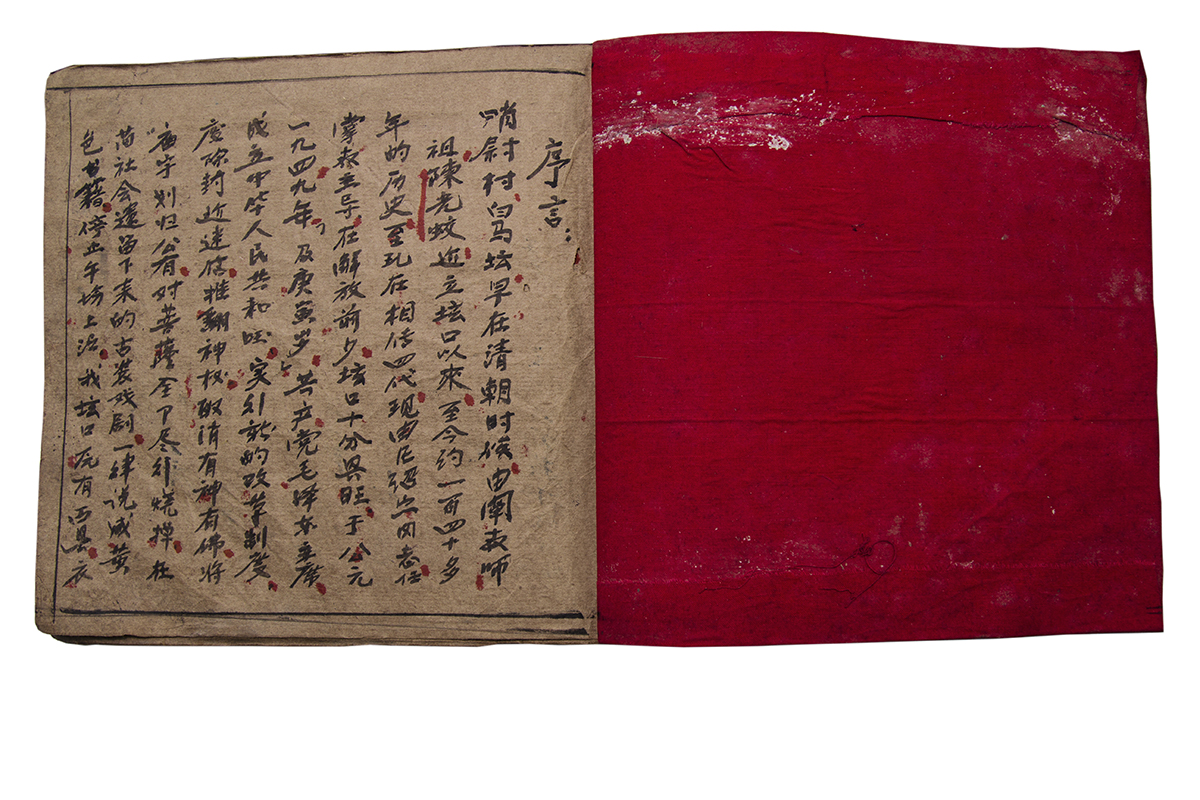 序言：
哨尉村白马坛早在清朝时候由阐教师
祖陳元蛟近立坛口以來至今约一百四十多
年的历史至现在相传四代现由法绍同志任
掌教主导在解放前夕坛口十分兴旺于公元
一九四九年及庚寅岁共产党毛泽东主席
成立中华人民共和国实行新的改革制度
废除封近迷信推翻神权取消有神有佛将
庙宇划归公有对菩薩全部尽行烧掉社
苗社会遗留下来的古装戏剧一律说成黄
色书籍停止午场上治我坛口死有西县衣